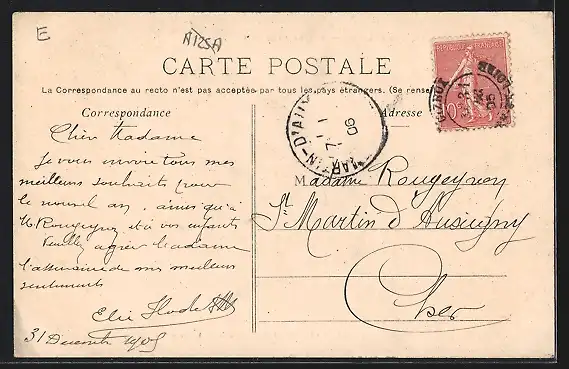 E
A125A
CARTE POSTALE
La Correspondance au recto n'est pas acceptée par tous les pays étrangers. (Se rense
Correspondance
Adresse
RÉPUBLIQUE FRANÇAISE
10
MARTIN-D'AUX
7 1
06
Chère Madame
Je vous envoie tous mes
meilleurs souhaits pour
le nouvel an, ainsi qu'à
M. Rougeyroy et à vos enfants
Veuillez agréer Madame
l'assurance de mes meilleurs
sentiments
Elie
31 Decembre 1905
Madame Rougeyroy
St Martin d'Auxigny
Cher